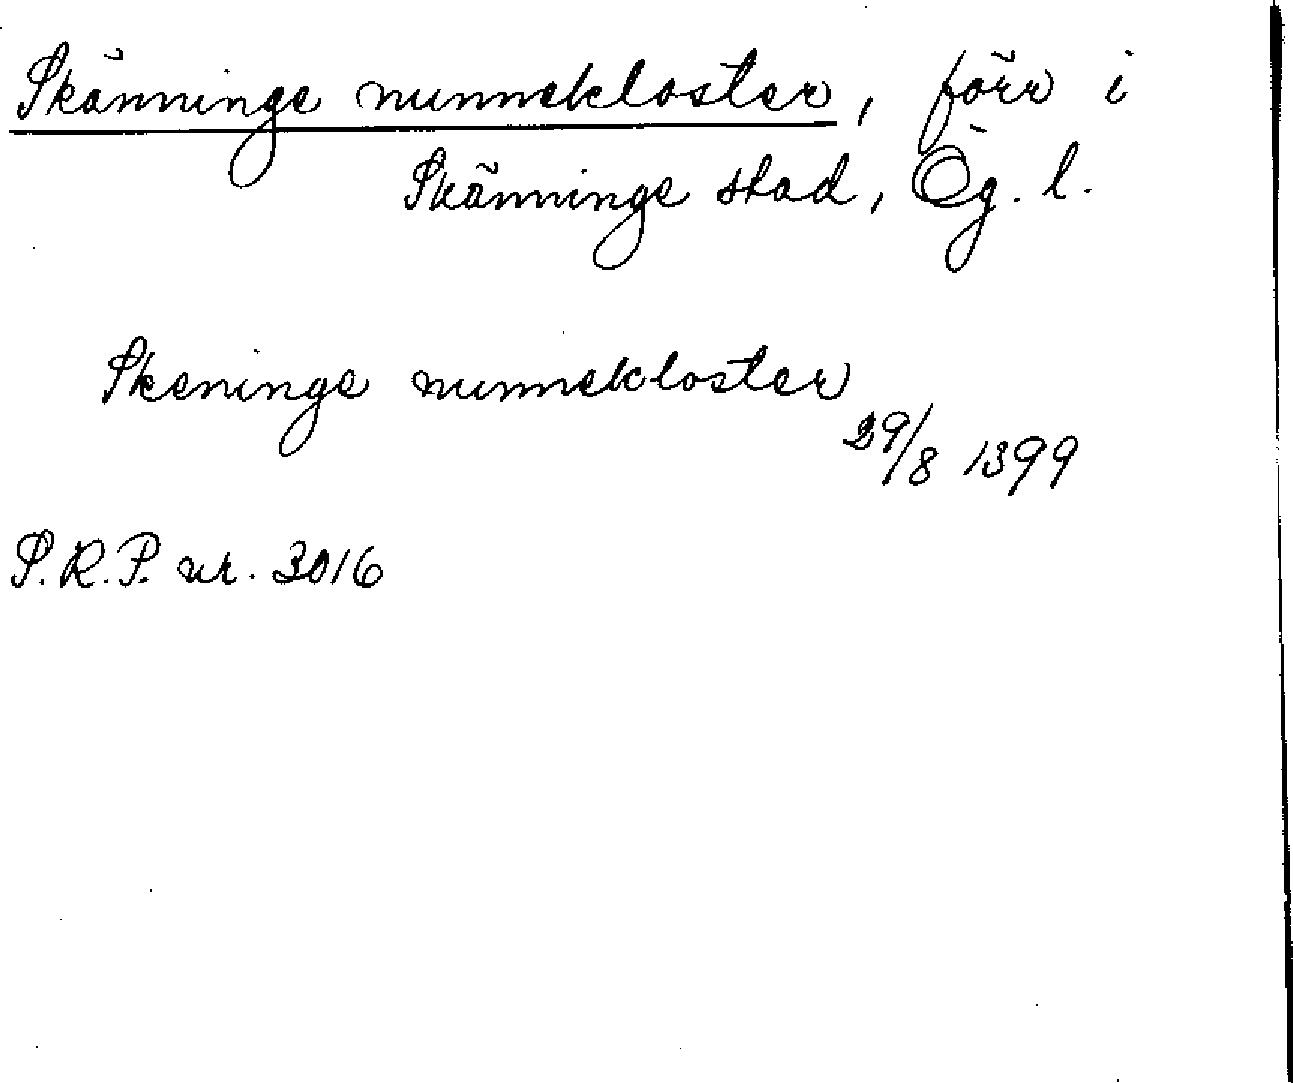 Skänninge nunnekloster, förr i
Skänninge stad, Ög. l.
Skeninge nunnekloster
29/8 1399
S.R.P. nr. 3016